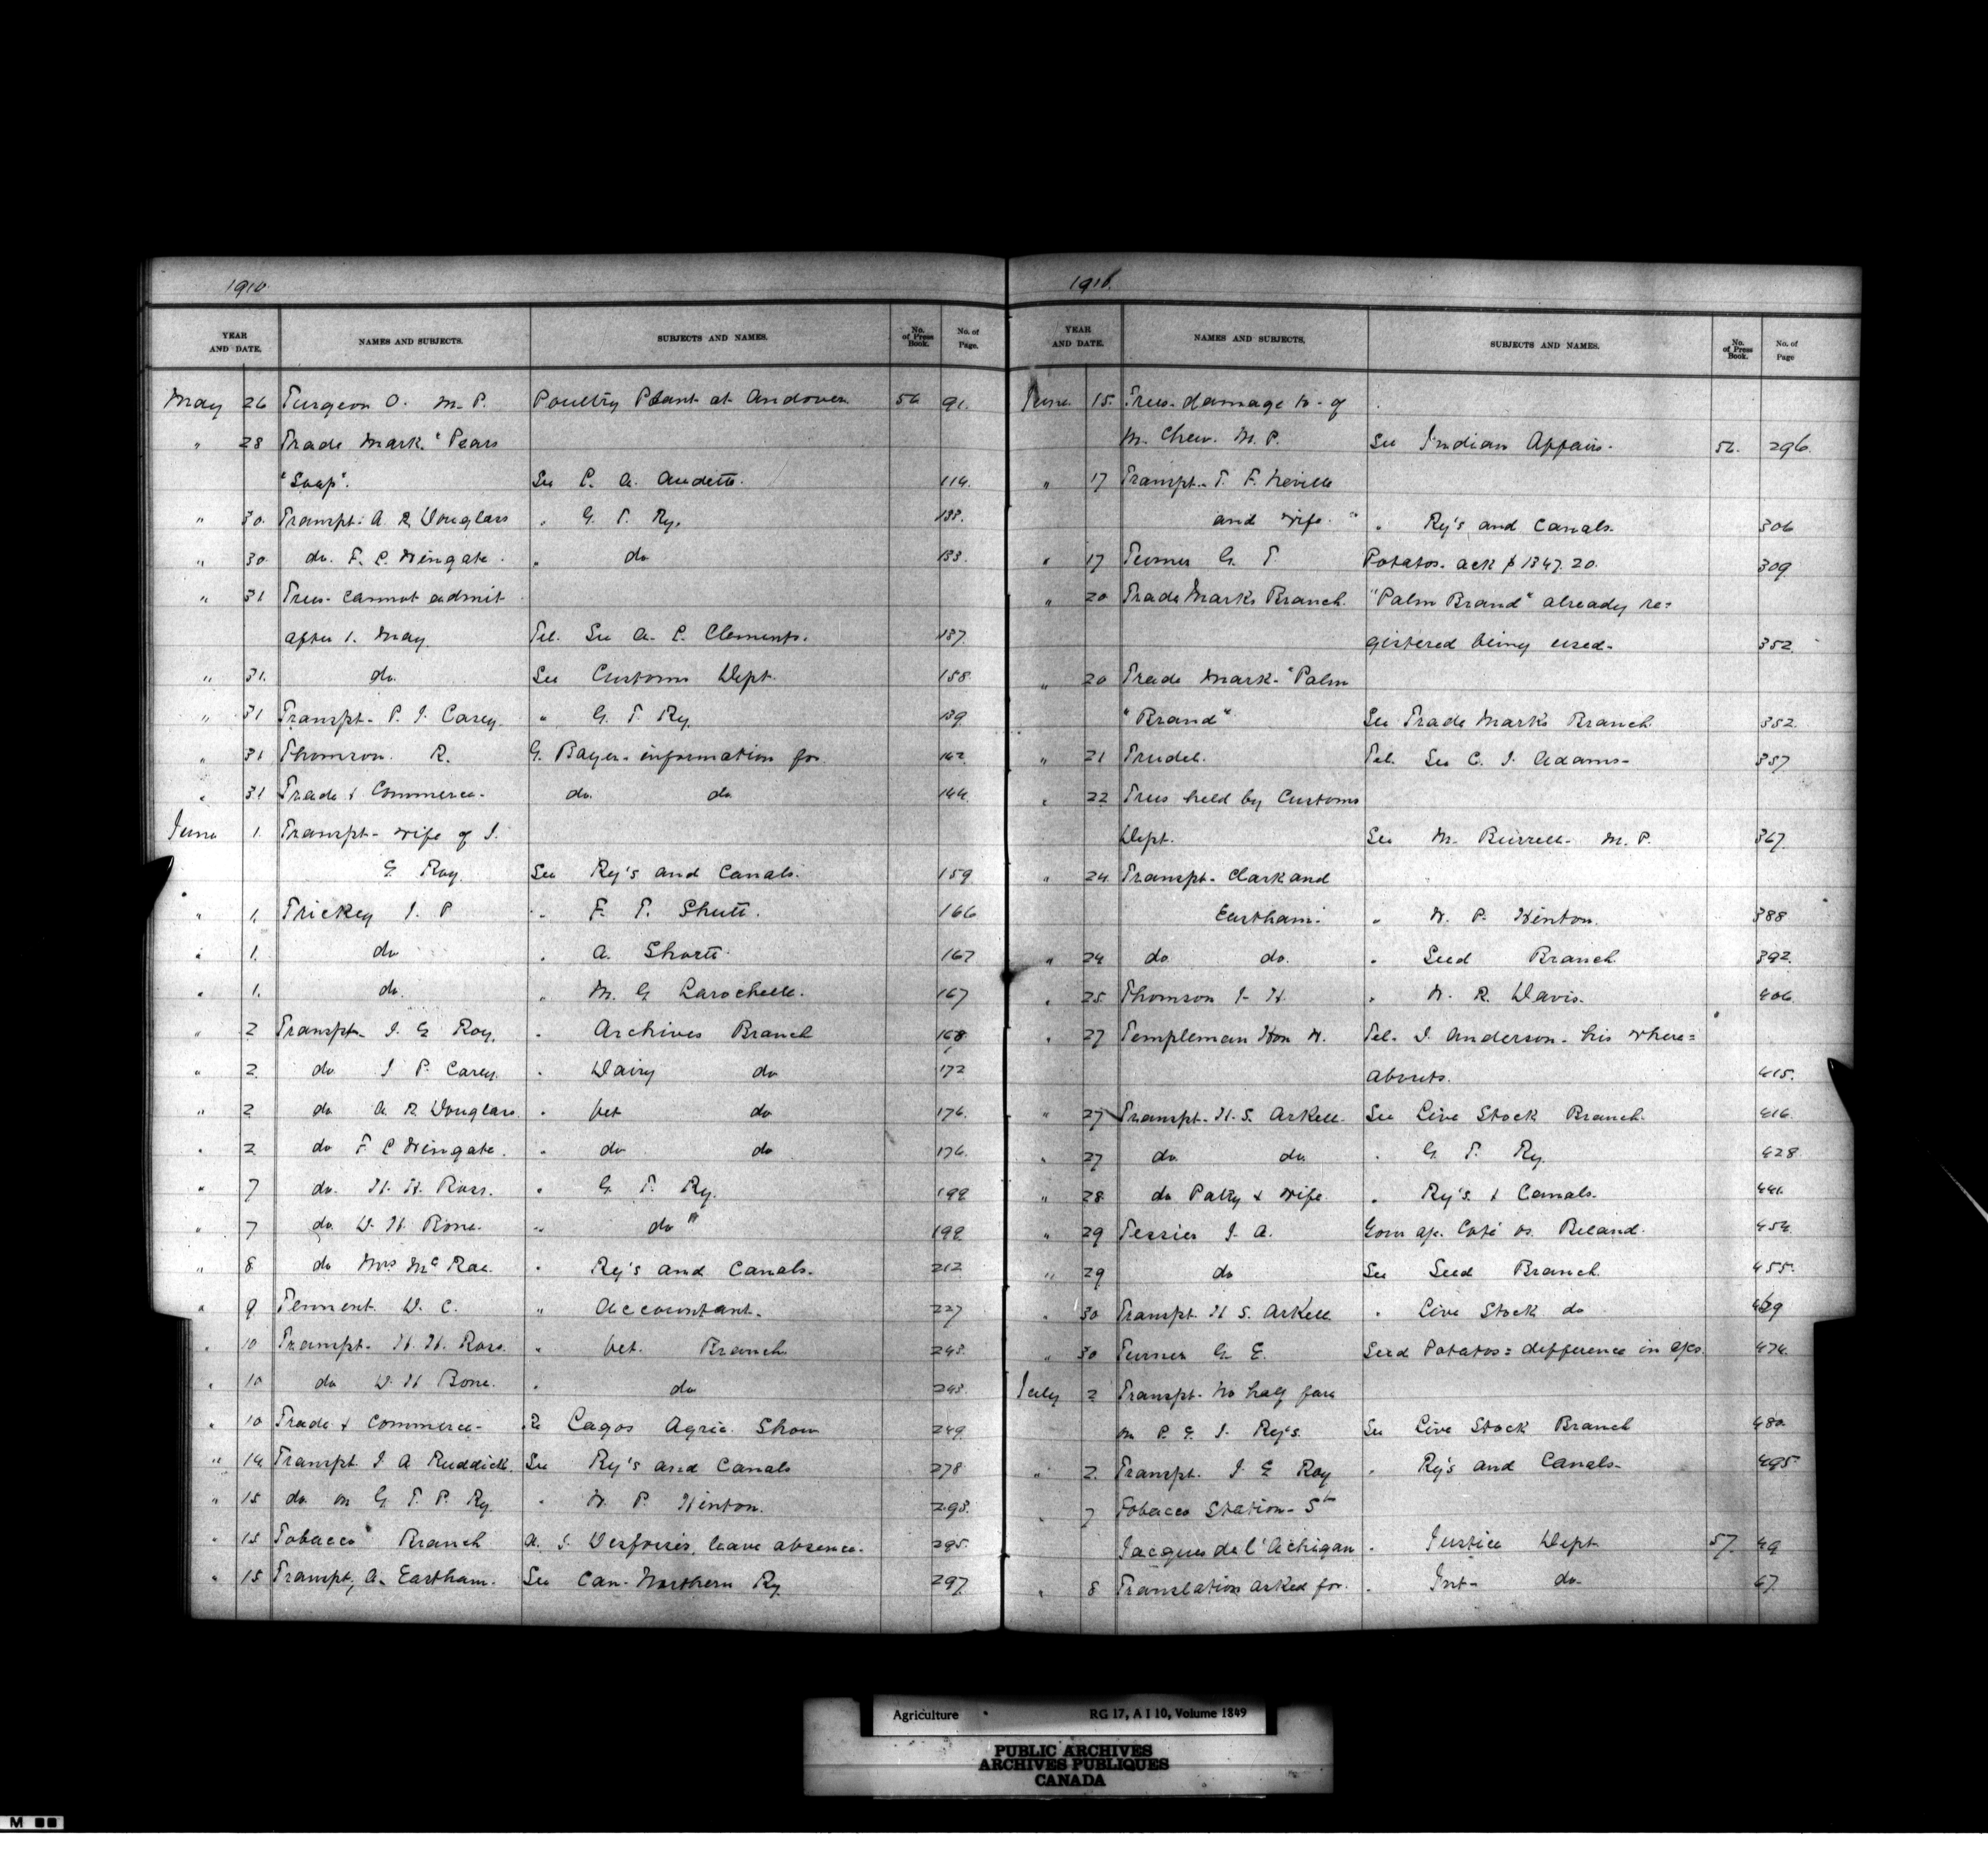 1910.
YEAR AND DATE. NAMES AND SUBJECTS. SUBJECTS AND NAMES. No. of Press Book. No. of Page.
May 26 Turgeon O. M. P. Poultry Plant at Andover 56 91.
" 28 Trade Mark. "Pears
"Soap". See L. A. Audette. 114.
" 30. Transpt. A. R. Douglass " G. T. Ry. 133.
" 30 do. F. C. Wingate. " do 133.
" 31 Trees. cannot admit
after 1. May. Tel. See A. C. Clements. 137.
" 31. do. See Customs Dept. 158.
" 31 Transpt. P. J. Carey. " G. T. Ry. 139.
" 31 Thomson. R. G. Bayer. information for 142.
" 31 Trade & Commerce. do. do 144.
June 1. Transpt. wife of J.
E Roy. See Ry's and Canals. 159.
" 1. Trickey J. P " F. T. Shutt. 166
" 1. do " A. Shortt. 167
" 1. do. " M. G Larochelle. 167
" 2 Transpt. J. E Roy. " Archives Branch 168.
" 2. do J P. Carey. " Dairy do 172
" 2 do A. R Douglass. " Vet do 176.
" 2 do F C Wingate. " do do 176.
" 7 do. H. H. Ross. " G T. Ry. 199
" 7 do. D. H. Bone. " do " 199.
" 8 do Mrs McRae. " Ry's and Canals. 212
" 9. Tennent. D. C. " Accountant. 227
" 10 Transpt. H. H. Ross. " Vet. Branch. 243.
" 10 do D. H Bone. " do 243.
" 10 Trade & Commerce. Re Lagos Agric. Show 249.
" 14 Transpt. J A Ruddick. See Ry's and Canals 278
" 15 do. on G. T. P. Ry. " W. P. Hinton. 293.
" 15 Tobacco Branch A. J. Desfosses, leave absence. 295.
" 15 Transpt, A. Eastham. See Can. Northern Ry. 297.
1910.
YEAR AND DATE. NAMES AND SUBJECTS. SUBJECTS AND NAMES. No. of Press Book. No. of Page
June. 15. Trees. damage to. of
M. Chew. M. P. See Indian Affairs. 56. 296.
" 17 Transpt. T. F. Neville
and wife. " " Ry's and Canals. 306
" 17 Turner G. T. Potatos. ack $1347.20. 309
" 20 Trade Marks Branch. "Palm Brand" already re=
gistered being used. 352.
" 20 Trade Mark. "Palm
"Brand" See Trade Marks Branch. 352.
" 21 Trudel. Tel. See C. J. Adams. 357
" 22 Trees held by Customs
Dept. See M. Burrell. M. P. 367.
" 24 Transpt. Clark and
Eastham. " W. P. Hinton. 388
" 24 do do. " Seed Branch. 392.
" 25. Thomson J. H. " W. R. Davis. 406.
" 27 Templeman Hon W. Tel. J. Anderson. his where=
abouts. 415.
" 27 Transpt. H. S. Arkell. See Live Stock Branch. 416.
" 27 do. do. " G. T. Ry. 428
" 28 do Patry & wife. " Ry's. & Canals. 441.
" 29 Tessier J. A. Gour ap. Coté vs. Beland. 454.
" 29 do See Seed Branch. 455.
" 30 Transpt. H S. Arkell " Live Stock do
" 30 Turner G. E. Seed Potatos = difference in 474.
July 2 Transpt. No half fare
on P. E. I. Ry's. See Live Stock Branch 480.
" 2. Transpt. J. E Roy " Ry's and Canals. 495
" 7 Tobacco Station. St
Jacques de l'Achigan " Justice Dept 57. 49
" 8 Translation asked for. " Int. do. 67.
Agriculture RG 17, A I 10, Volume 1849
PUBLIC ARCHIVES
ARCHIVES PUBLIQUES
CANADA
M